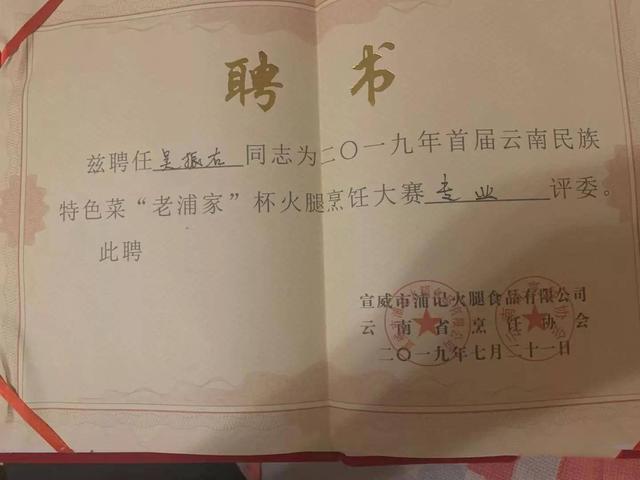 聘书
兹聘任吴振右同志为二〇一九年首届云南民族
特色菜“老浦家”杯火腿烹饪大赛专业评委。
此聘
宣威市浦记火腿食品有限公司
云南省烹饪协会
二〇一九年七月二十一日